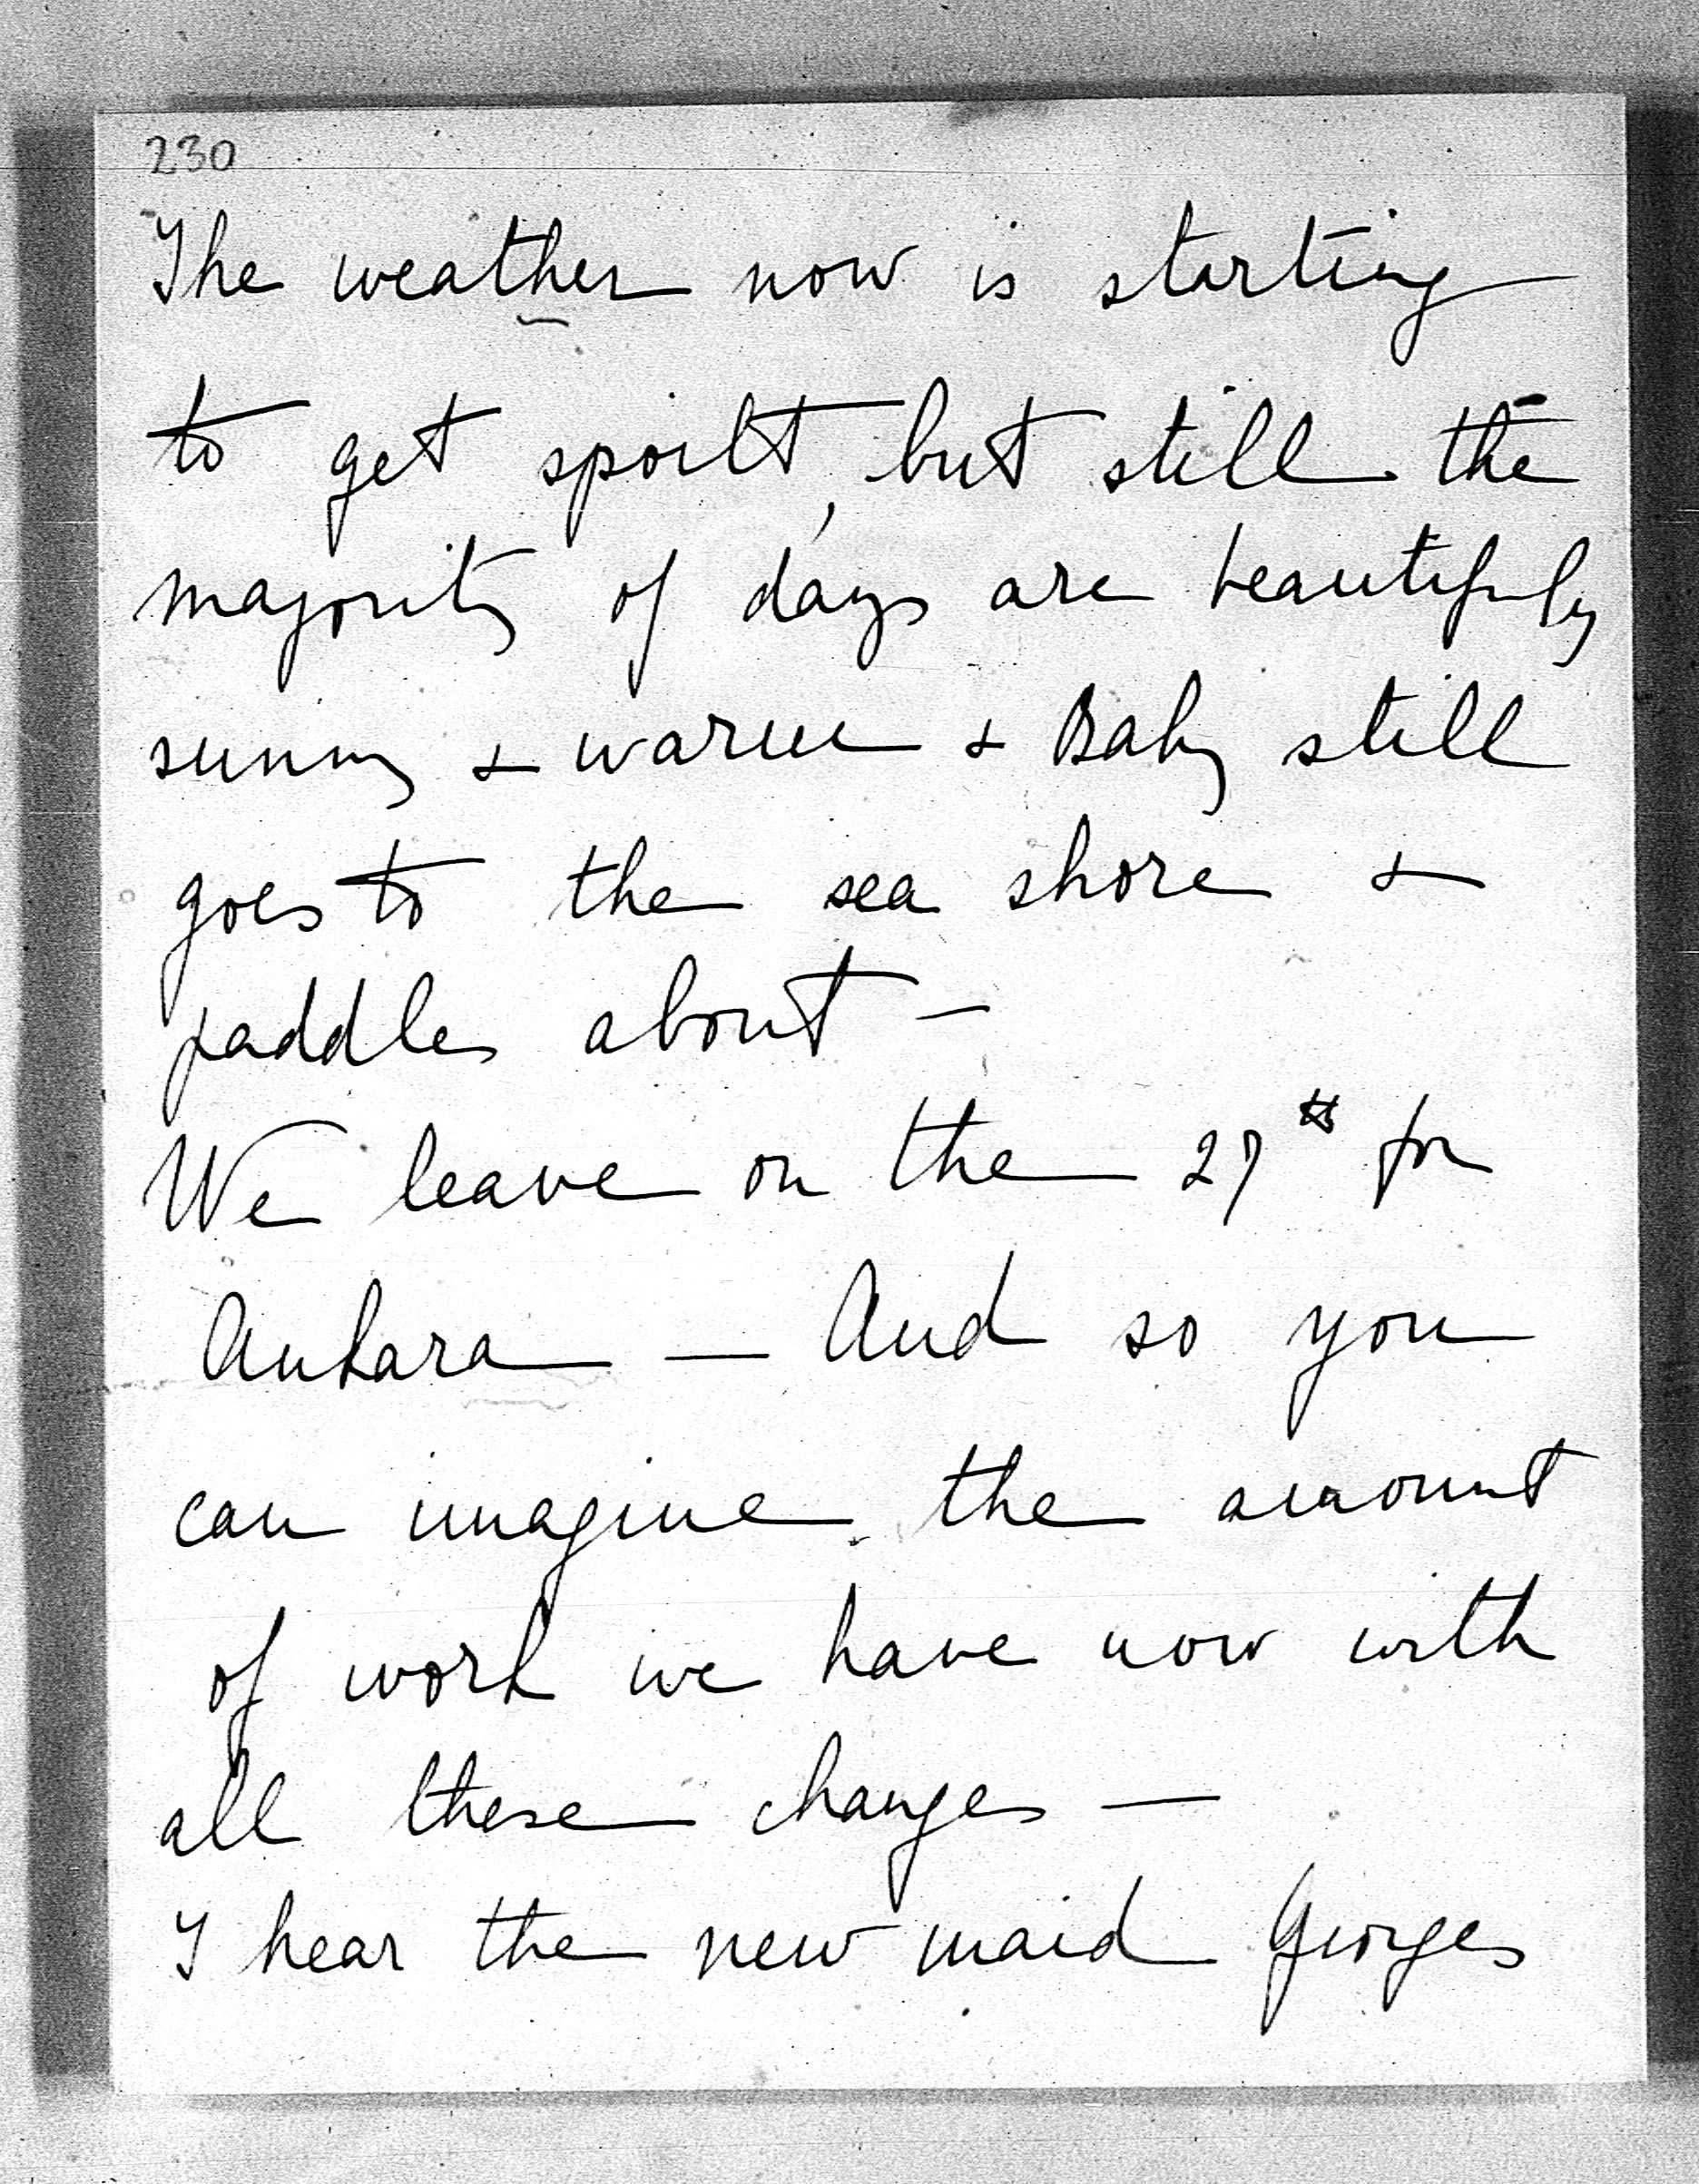 230
The weather now is starting
to get spoilt, but still the
majority of days are beautifuly
sunny & warm & Baby still
goes to the sea shore &
paddles about —
We leave on the 27th for
Ankara — And so you
can imagine the amount
of work we have now with
all these changes —
I hear the new maid Georges